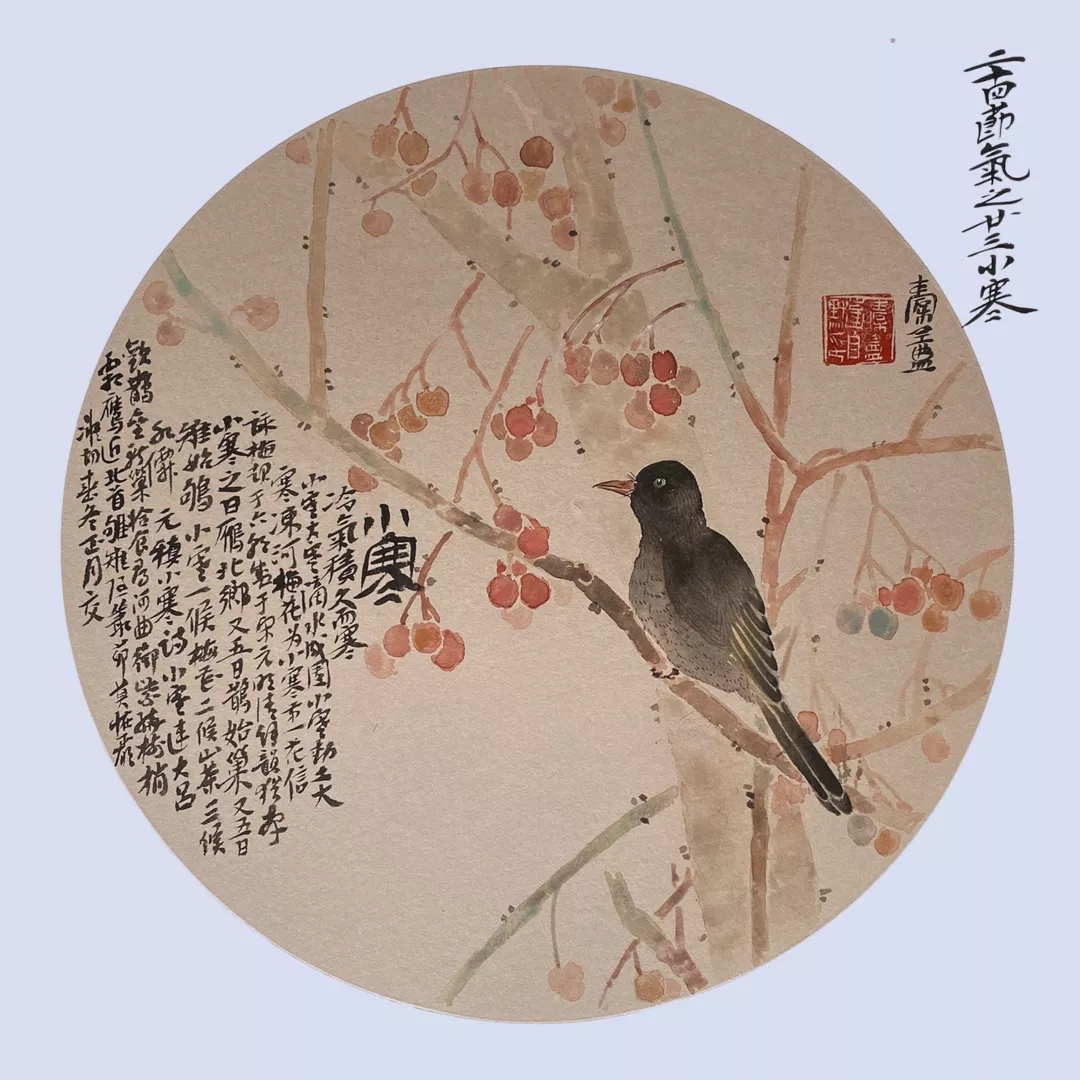 二十四節氣之廿三小寒
小寒
冷氣積久而寒
小寒大寒滴水成團小寒勝大
寒凍河梅花为小寒第一花信
詠梅起于六朝盛于宋元明清餘韻猶存
小寒之日雁北鄉又五日鵲始巢又五日
雉始鴝 小寒一候梅花二候山茶三候
水僊 元稹小寒詩 小寒連大呂
歡鵲壘新巢拾食尋河曲銜紫繞樹梢
霜鷹近北首雊雉隱叢茅莫怪嚴
凝切春冬正月交